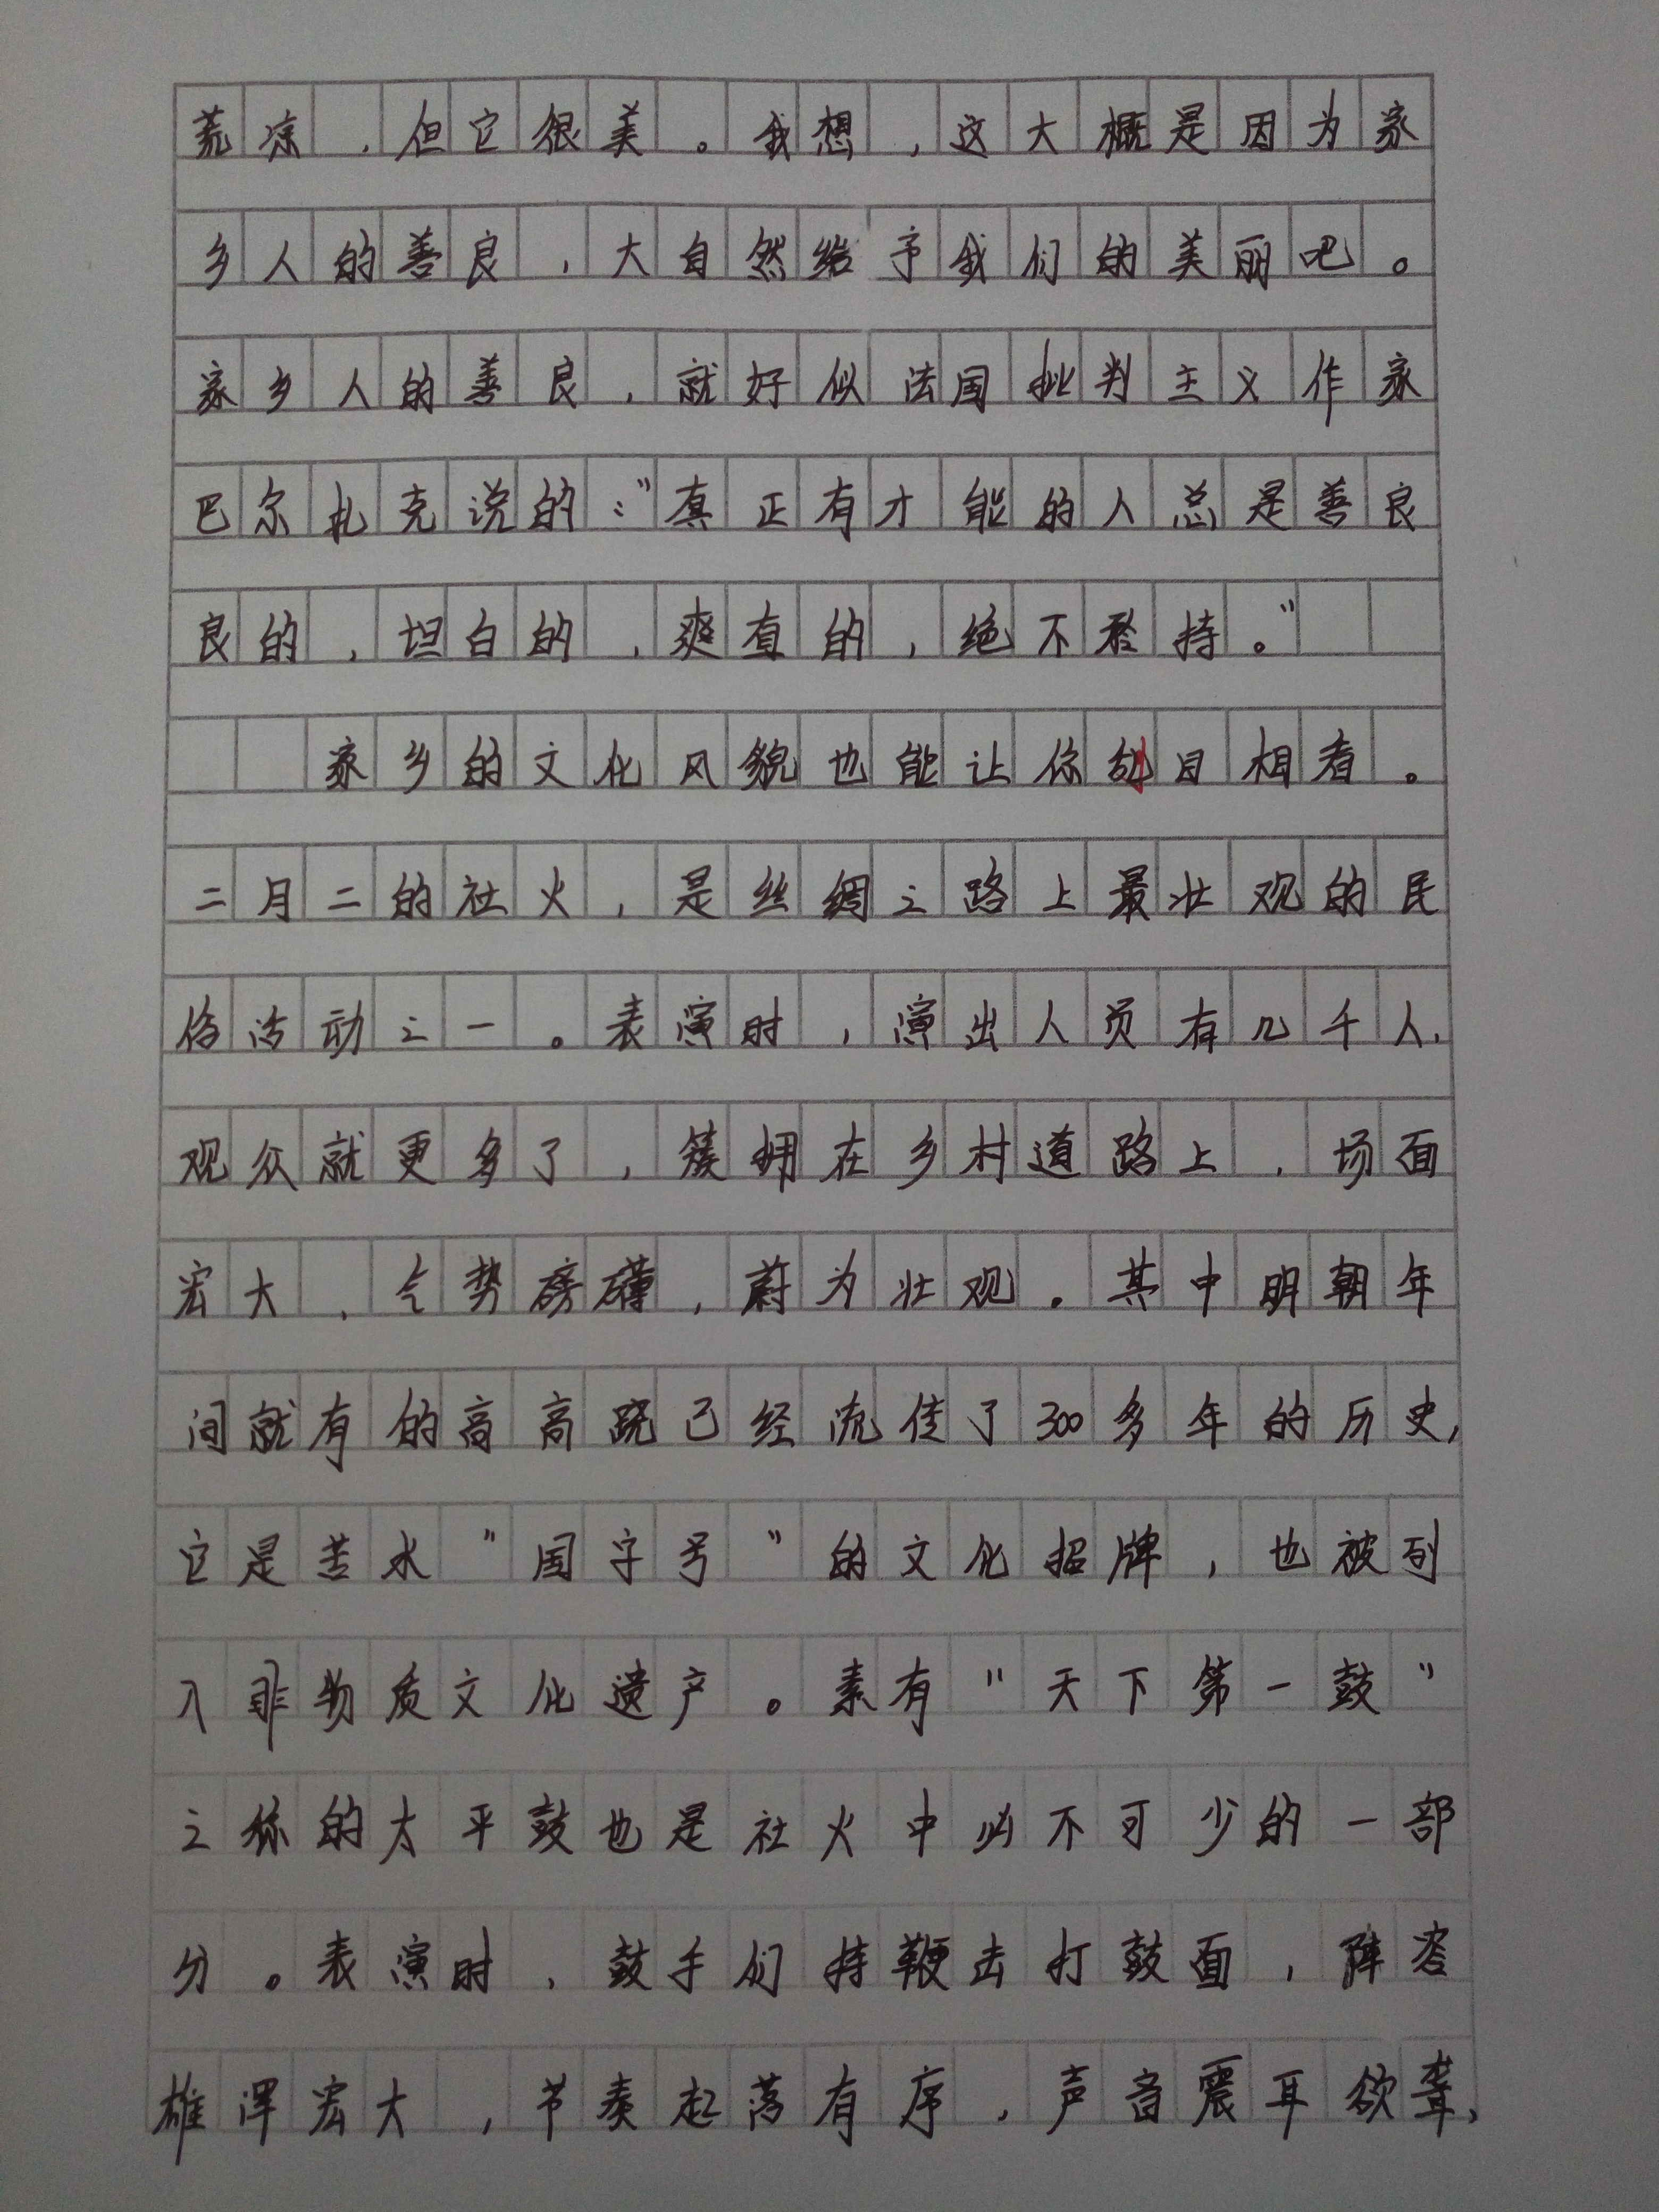 荒凉，但它很美。我想，这大概是因为家
乡人的善良，大自然给予我们的美丽吧。
家乡人的善良，就好似法国批判主义作家
巴尔扎克说的：“真正有才能的人总是善良
良的，坦白的，爽直的，绝不矜持。”
家乡的文化风貌也能让你刮目相看。
二月二的社火，是丝绸之路上最壮观的民
俗活动之一。表演时，演出人员有几千人，
观众就更多了，簇拥在乡村道路上，场面
宏大，气势磅礴，蔚为壮观。其中明朝年
间就有的高高跷已经流传了300多年的历史，
它是苦水“国字号”的文化招牌，也被列
入非物质文化遗产。素有“天下第一鼓”
之称的太平鼓也是社火中必不可少的一部
分。表演时，鼓手们持鞭击打鼓面，阵容
雄浑宏大，节奏起落有序，声音震耳欲聋，